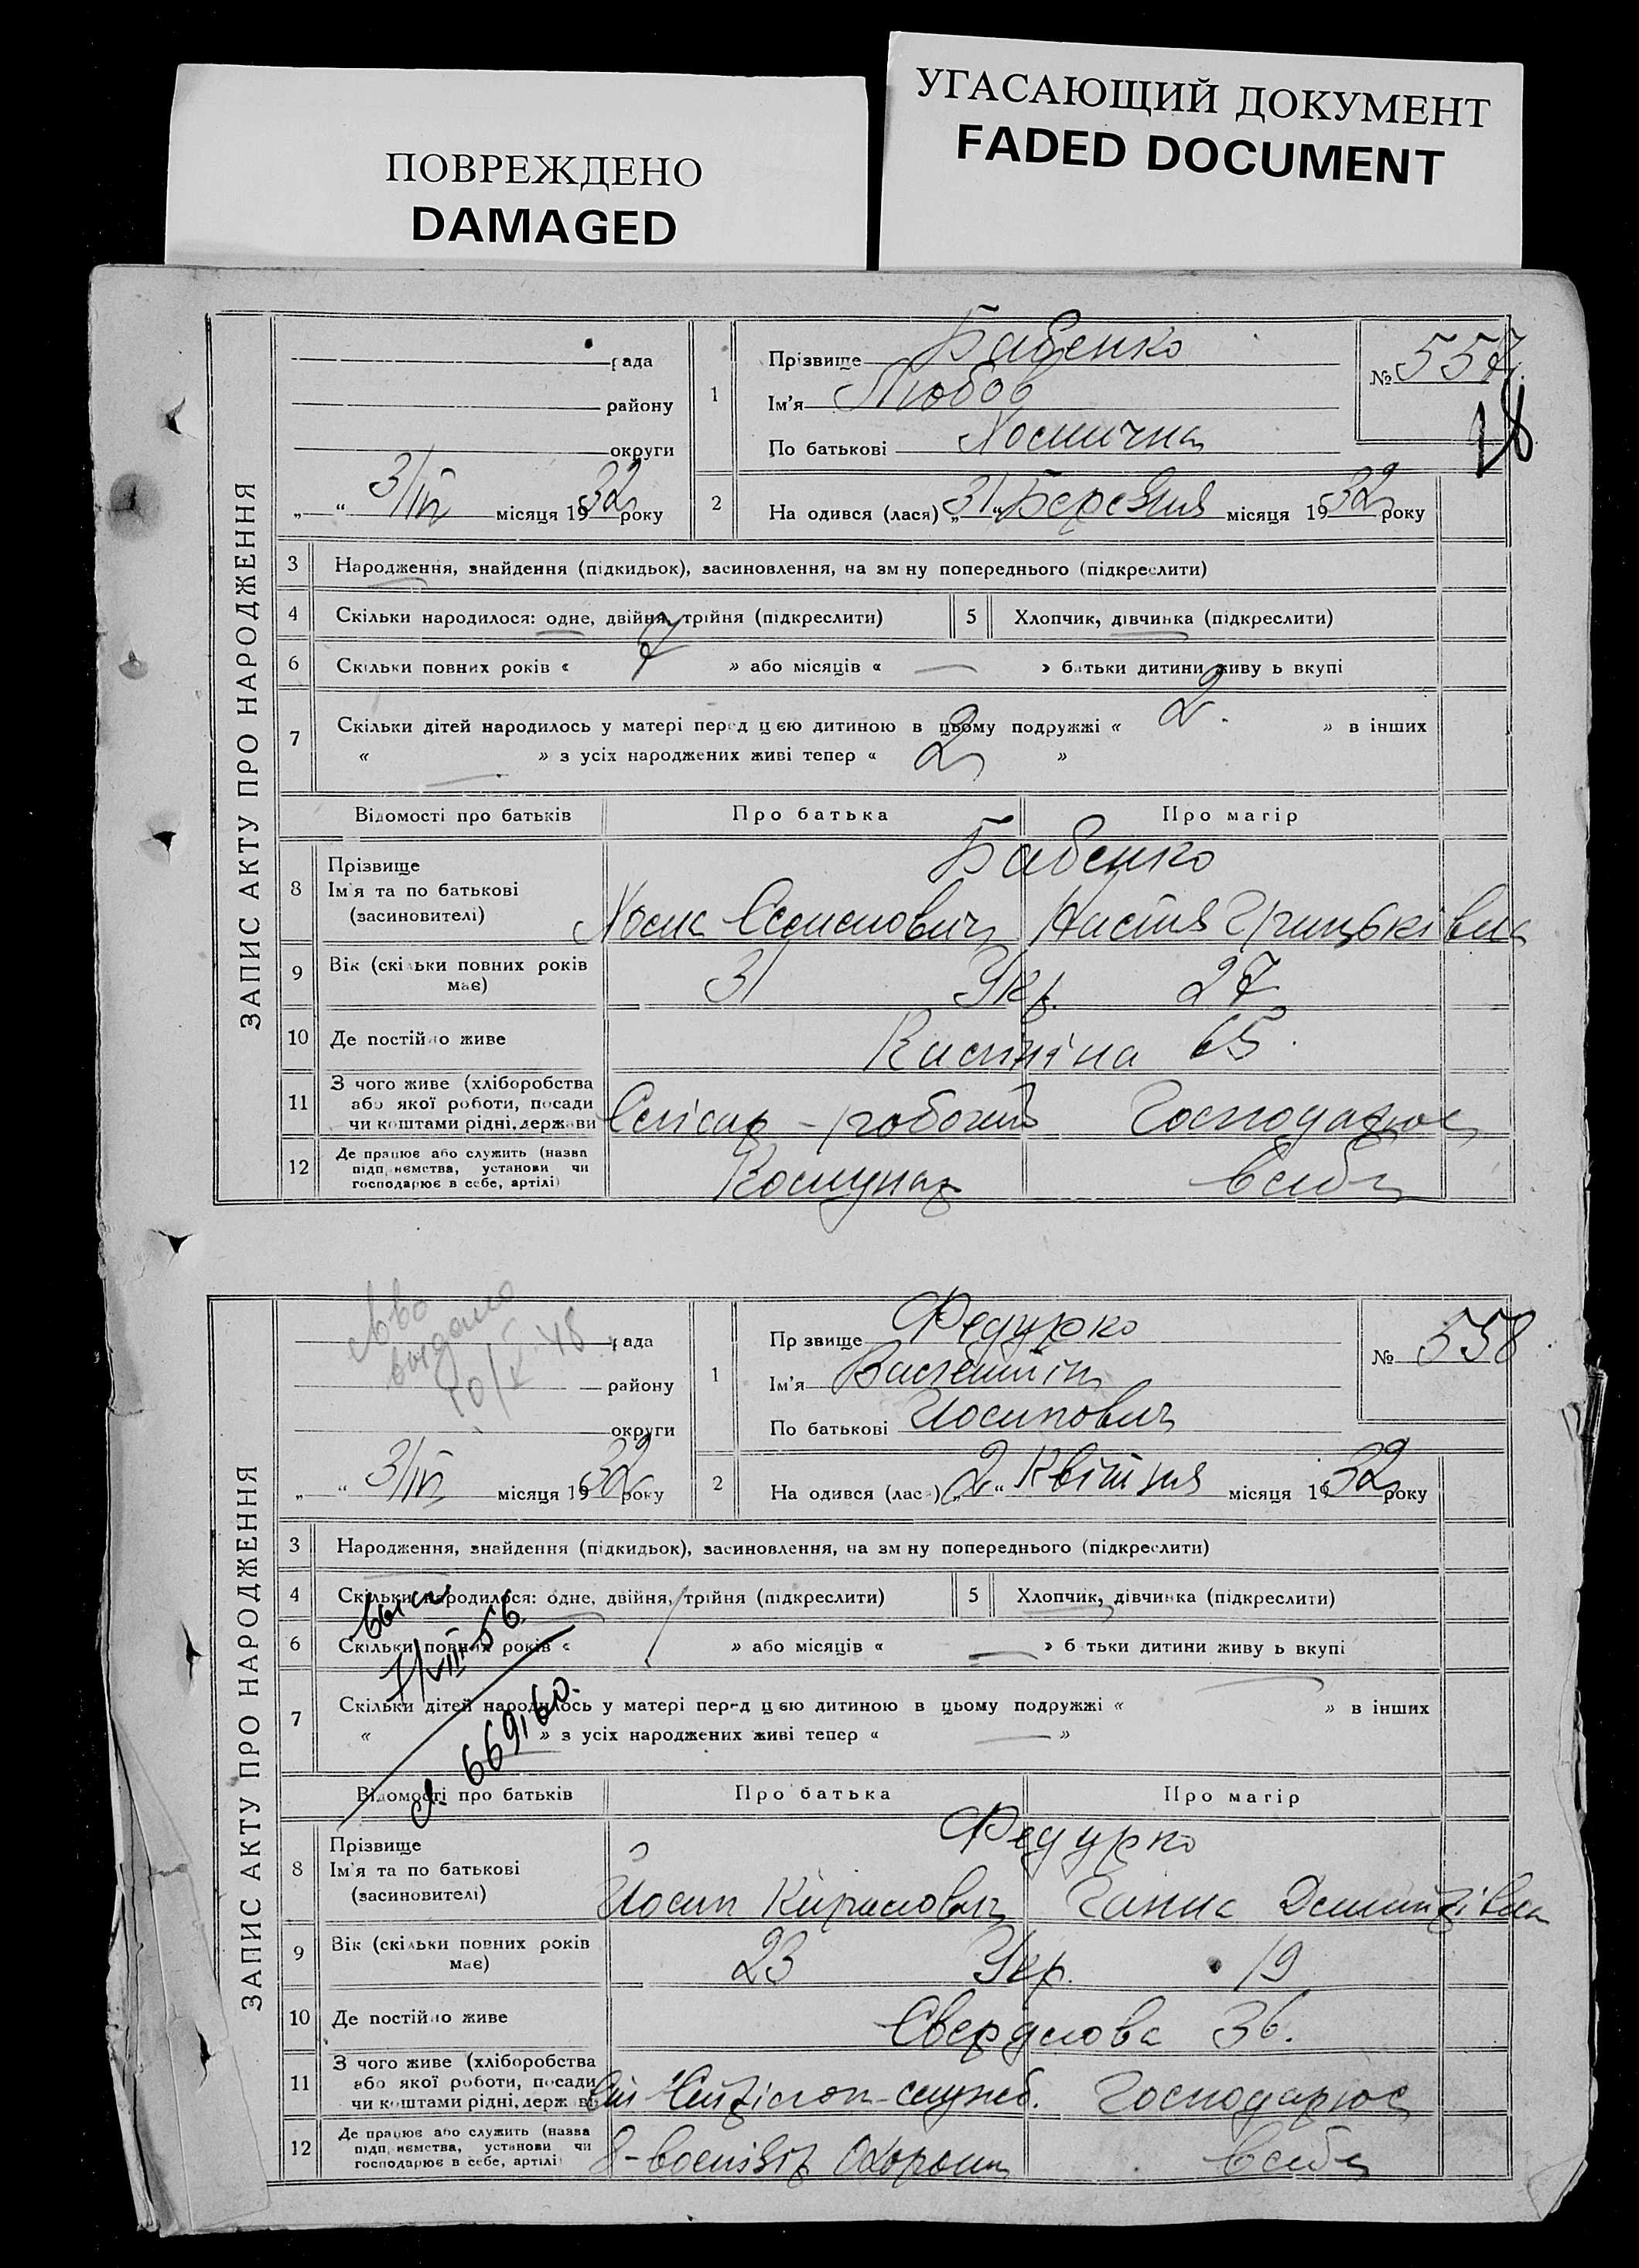 ПОВРЕЖДЕНО
DAMAGED
УГАСАЮЩИЙ ДОКУМЕНТ
FADED DOCUMENT
ЗАПИС АКТУ ПРО НАРОДЖЕННЯ
рада
району
округи
„ “ 3/IV місяця 1932 року
1 Прізвище Бабенко
Ім'я Любов
По батькові
№ 557
18
2 На одився (лася) „31“ Березня місяця 1932 року
3 Народження, знайдення (підкидьок), засиновлення, на зм ну попереднього (підкреслити)
4 Скільки народилося: одне, двійня, трійня (підкреслити) 5 Хлопчик, дівчинка (підкреслити)
6 Скільки повних років « 7 » або місяців « — » батьки дитини живу ь вкупі
7 Скільки дітей народилось у матері перед цєю дитиною в цьому подружжі « 2. » в інших
« — » з усіх народжених живі тепер « 2 »
Відомості про батьків Про батька Про матір
8 Прізвище Бабенко
Ім'я та по батькові
(засиновителі) Семенович Настя Грицьківна
9 Вік (скільки повних років має) 31 Укр. 27
10 Де постійно живе 65.
11 З чого живе (хліборобства
або якої роботи, посади
чи коштами рідні, держави Слісар - робочий Господарює
12 Де працює або служить (назва
підп иємства, установи чи
господарює в себе, артілі) Комунар в себе
ЗАПИС АКТУ ПРО НАРОДЖЕННЯ
выдано
10/X 48
рада
району
округи
„ “ 3/IV місяця 1932 року
1 Пр звище Федурко
Ім'я Валентін
По батькові Йосипович
№ 558
2 На одився (лас ) „2“ Квітня місяця 1932 року
3 Народження, знайдення (підкидьок), засиновлення, на зм ну попереднього (підкреслити)
4 Скільки народилося: одне, двійня, трійня (підкреслити) 5 Хлопчик, дівчинка (підкреслити)
6 Скільки повних років « 1 » або місяців « — » б тьки дитини живу ь вкупі
7 Скільки дітей народилось у матері перед цєю дитиною в цьому подружжі « — » в інших
« » з усіх народжених живі тепер « — »
7/VIII-56
Відомості про батьків Про батька Про матір
8 Прізвище Федурко
Ім'я та по батькові
(засиновителі) Йосип Кирилович Ганна Дмитрівна
9 Вік (скільки повних років має) 23 Укр. 19
10 Де постійно живе Свердлова 36.
11 З чого живе (хліборобства
або якої роботи, посади
чи коштами рідні, держ ви служб. Господарює
12 Де працює або служить (назва
підп иємства, установи чи
господарює в себе, артілі) Охорони в себе